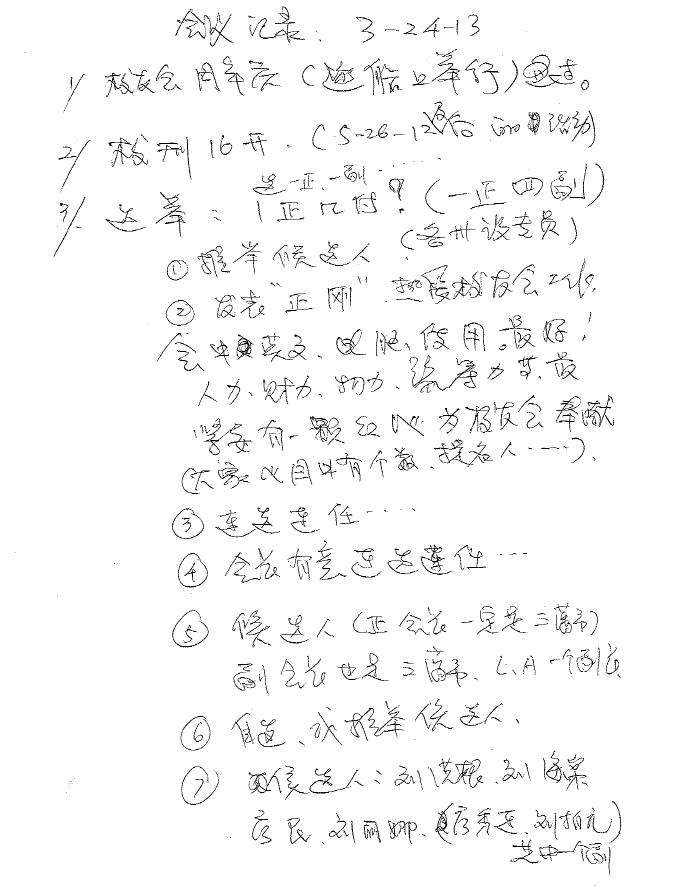 会议记录: 3-24-13
1/ 校友会周年庆(游船上举行)通过。
2/ 校刊16开. (5-26-12及后的活动)
选一正、一副······
3/. 选举: 1正几付? (一正四副)
(各州设专员)
① 推举候选人
② 发表"正刚". 热爱校友会工作.
会中英文、电脑、使用。最好!
人力、财力、物力、等. 最
需要有一颗红心为校友会奉献
(大家心目中有个数、提名人·····).
③ 连选连任····
④ 会长有意连选连任···
⑤ 候选人 (正会长一定是三藩市)
副会长也是三藩市. L.A一个副长
⑥ 自选、或推举候选人.
⑦ 候选人: 刘洪根、刘
民、刘丽娜、(秀连、刘柏元)
其中一个副